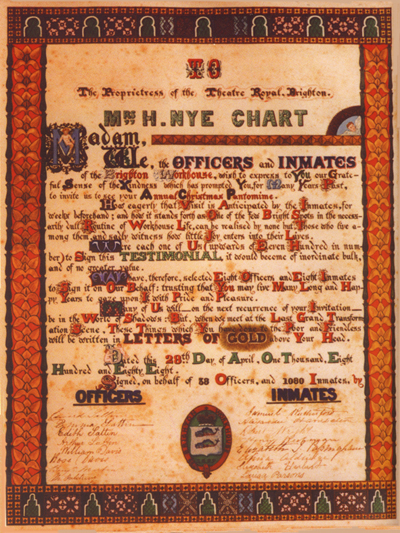 TO
The Proprietress of the Theatre Royal, Brighton.
Mrs H. NYE CHART
Madam,
We, the OFFICERS and INMATES
of the Brighton Workhouse, wish to express to You our Grate-
ful Sense of the Kindness which has prompted You, for Many Years Past,
to invite us to see your Annual Christmas Pantomime.
How eagerly that Visit is Anticipated by the Inmates, for
weeks beforehand; and how it stands forth as One of the few Bright Spots in the necessa-
rily dull Routine of Workhouse Life, can be realised by none but Those who live a-
mong them and sadly witness how little Joy enters into their Lives.
Were each one of Us, upwards of Eleven Hundred in num-
ber, to Sign this TESTIMONIAL it would become of inordinate bulk,
and of no greater value.
We have, therefore, selected Eight Officers and Eight Inmates
to Sign it on Our Behalf: trusting that You may live Many Long and Hap-
py Years to gaze upon it with Pride and Pleasure.
Many of Us will, on the next recurrence of your Invitation
be in the World of Shadows: But, when we meet at the Last Grand Transform-
ation Scene, These Things which You the Poor and Friendless
will be written in LETTERS OF GOLD above Your Head.
Dated this 28th Day of April, One Thousand, Eight
Hundred and Eighty Eight.
Signed, on behalf of 58 Officers, and 1060 Inmates, by
OFFICERS INMATES
Edith Sattin
Arthur
William Davis
Samuel Rutherford
James Parsons